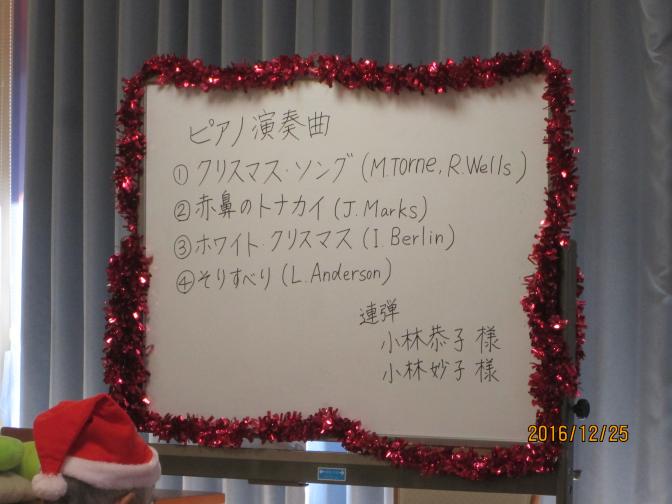 ピアノ演奏曲
① クリスマス・ソング (M.Torne, R.Wells)
② 赤鼻のトナカイ (J.Marks)
③ ホワイト・クリスマス (I.Berlin)
④ そりすべり (L.Anderson)
連弾
小林恭子様
小林妙子様
2016/12/25